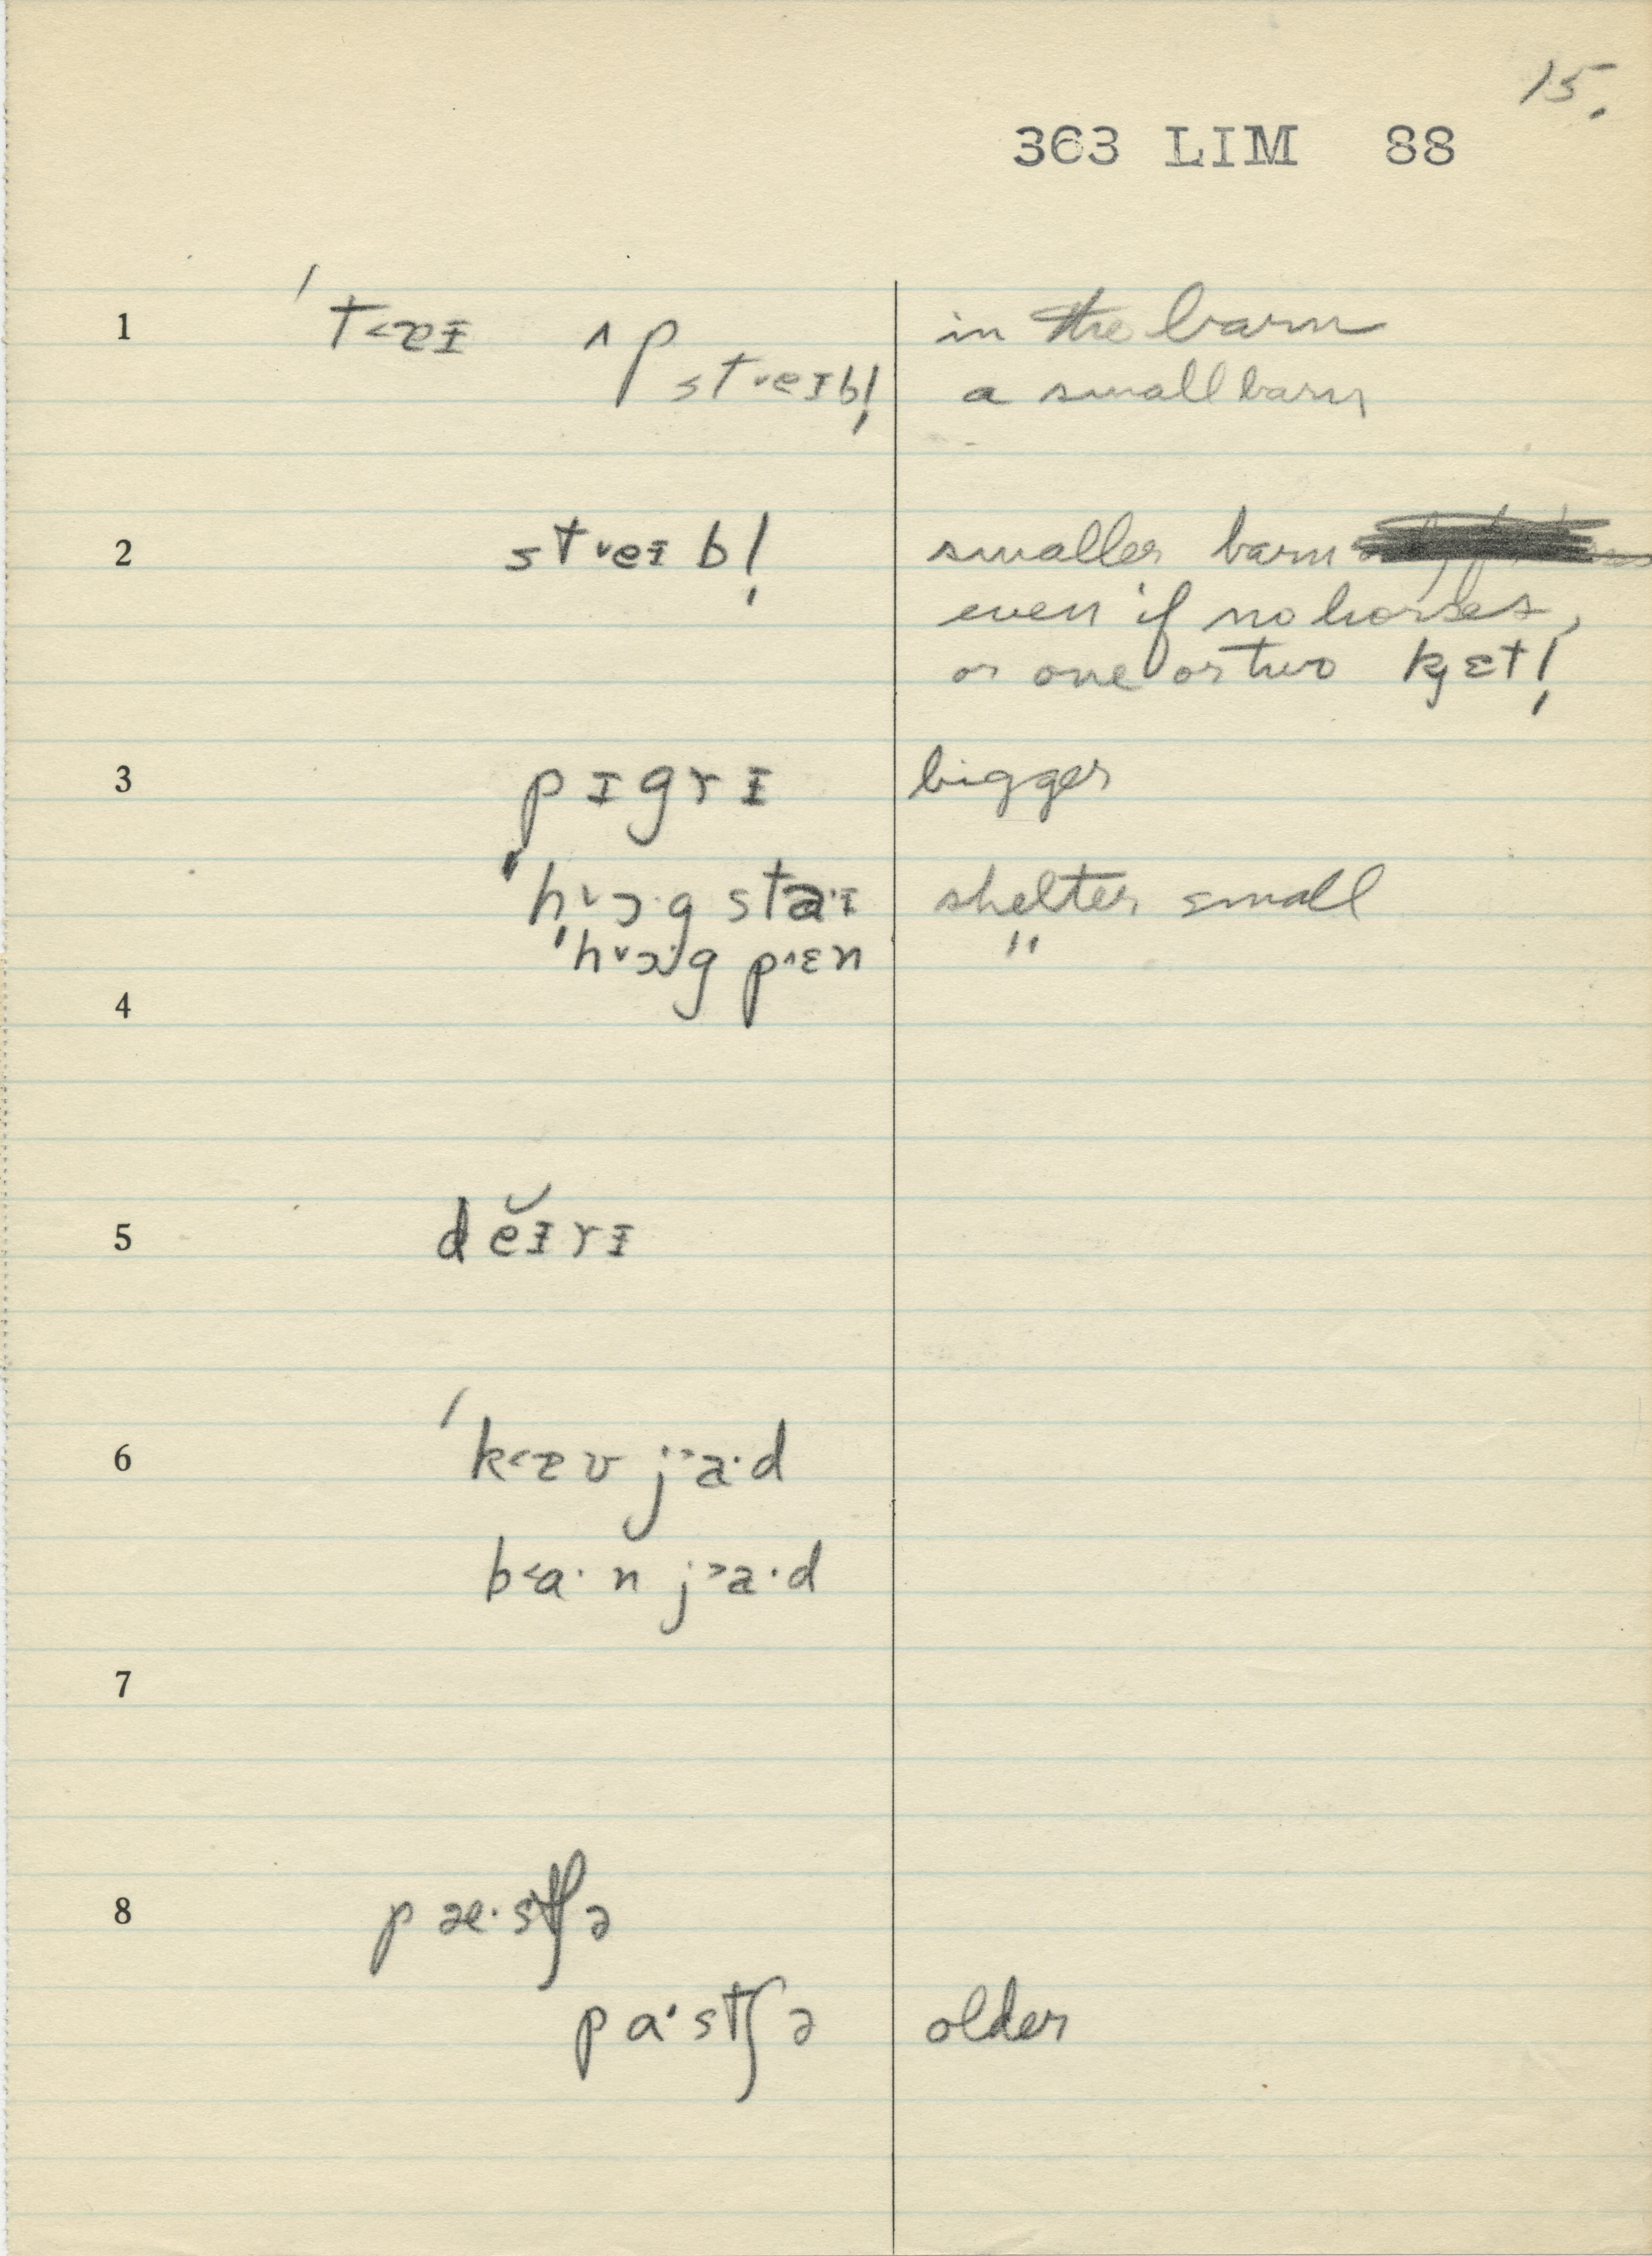 15.
363 LIM 88
1 ˈt˂æɪ ʌp in the barn
st˅eɪbl̩ a small barn
2 st˅eɪbl̩ smaller barn
even if no horses,
or one or two kjɛtl̩
3 pɪgrɪ bigger
ˈh˅ɔ·g staɪ shelter small
ˈh˅ɔ·g p˄ɛn "
4
5 dĕɪrɪ
6 ˈk˂æʊ j˃a·d
b˂a·n j˃a·d
7
8 pæ·stʃə
pa·stʃə older